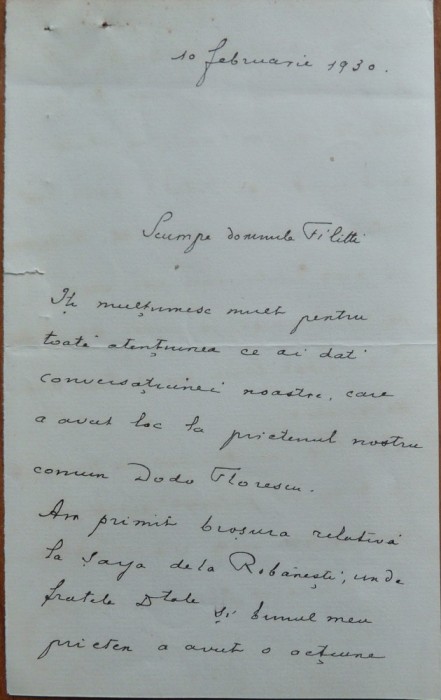 10 februarie 1930.
Scumpe domnule Filitti
Îți mulțumesc mult pentru
toată atențiunea ce ai dat
conversațiunei noastre, care
a avut loc la prietenul nostru
comun Dodo Florescu.
Am primit broșura relativă
la șarja dela Robănești, unde
fratele Dtale și bunul meu
prieten a avut o acțiune